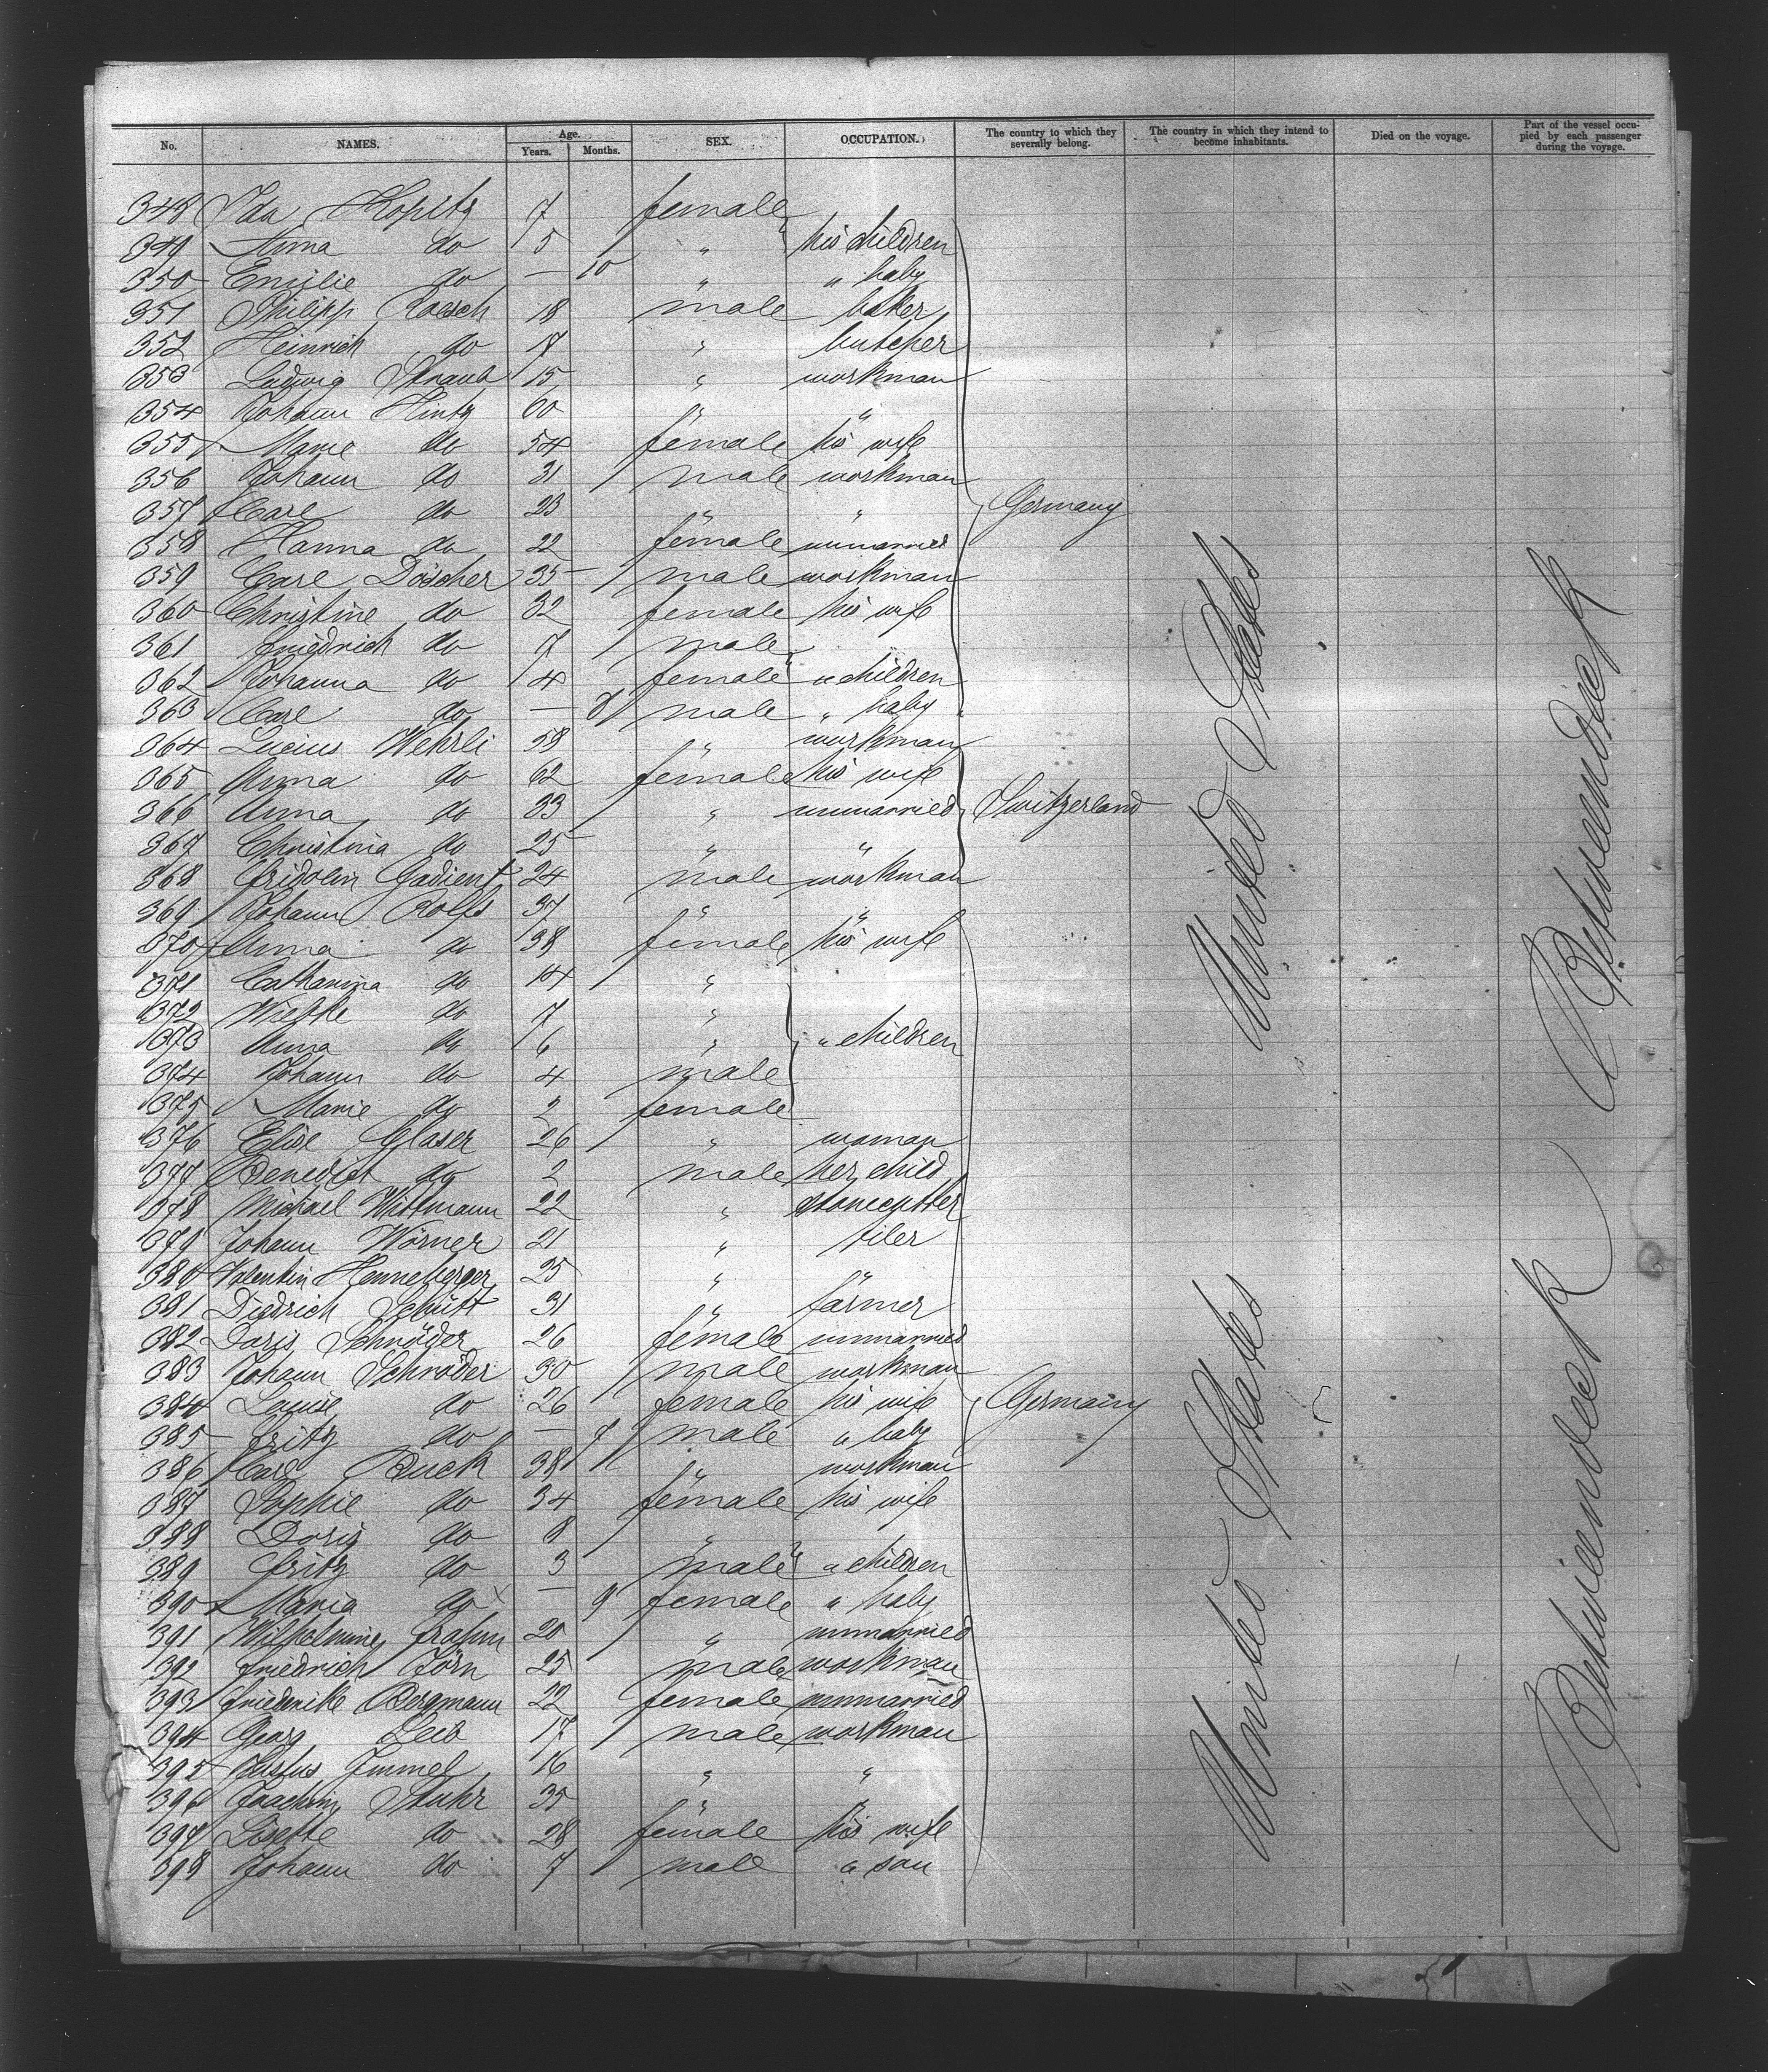 No. NAMES. Age. Years. Months. SEX. OCCUPATION. The country to which they severally belong. The country in which they intend to become inhabitants. Died on the voyage. Part of the vessel occupied by each passenger during the voyage.
348 Ida Kopitz 7 female
349 Anna do 5 " his children
350 Emilie do — 10 " " baby
351 Philipp Roesch 18 male baker
352 Heinrich do 17 " butcher
353 Ludwig Straub 15 " workman
354 Johann Hintz 60 " "
355 Marie do 54 female his wife
356 Johann do 31 male workman
357 Carl do 23 " " Germany
358 Hanna do 22 female unmarried
359 Carl Döscher 35 male workman
360 Christine do 32 female his wife
361 Friedrich do 7 male
362 Johanna do 4 female " children
363 Carl do — 8 male " baby
364 Lucius Wehrli 58 " workman
365 Anna do 62 female his wife
366 Anna do 33 " unmarried Switzerland
367 Christina do 25 " "
368 Fridolin Gadient 24 male workman
369 Johann Rolfs 37 " "
370 Anna do 38 female his wife
371 Catharina do 14 "
372 Wiebke do 7 "
373 Anna do 6 " " children
374 Johann do 4 male
375 Marie do 2 female
376 Elise Glaser 26 " woman
377 Benedict do 2 male her child
378 Michael Wittmann 22 " stonecutter
379 Johann Wörner 21 " tiler
380 Valentin Henneberger 25 " "
381 Diedrich Schütt 31 " farmer
382 Doris Schröder 26 female unmarried
383 Johann Schröder 30 male workman
384 Louise do 26 female his wife Germany
385 Fritz do — 9 male " baby
386 Carl Buck 38 " workman
387 Sophie do 34 female his wife
388 Doris do 8 "
389 Fritz do 3 male " children
390 Maria do — 9 female " baby
391 Wilhelmine Frahm 20 " unmarried
392 Friedrich Jörn 25 male workman
393 Friederike Bergmann 22 female unmarried
394 Georg Leib 17 male workman
395 Justus Immel 16 " "
396 Joachim Stuhr 35 " "
397 Lisette do 28 female his wife
398 Johann do 7 male " son
United States
United States
Betweendeck
Betweendeck